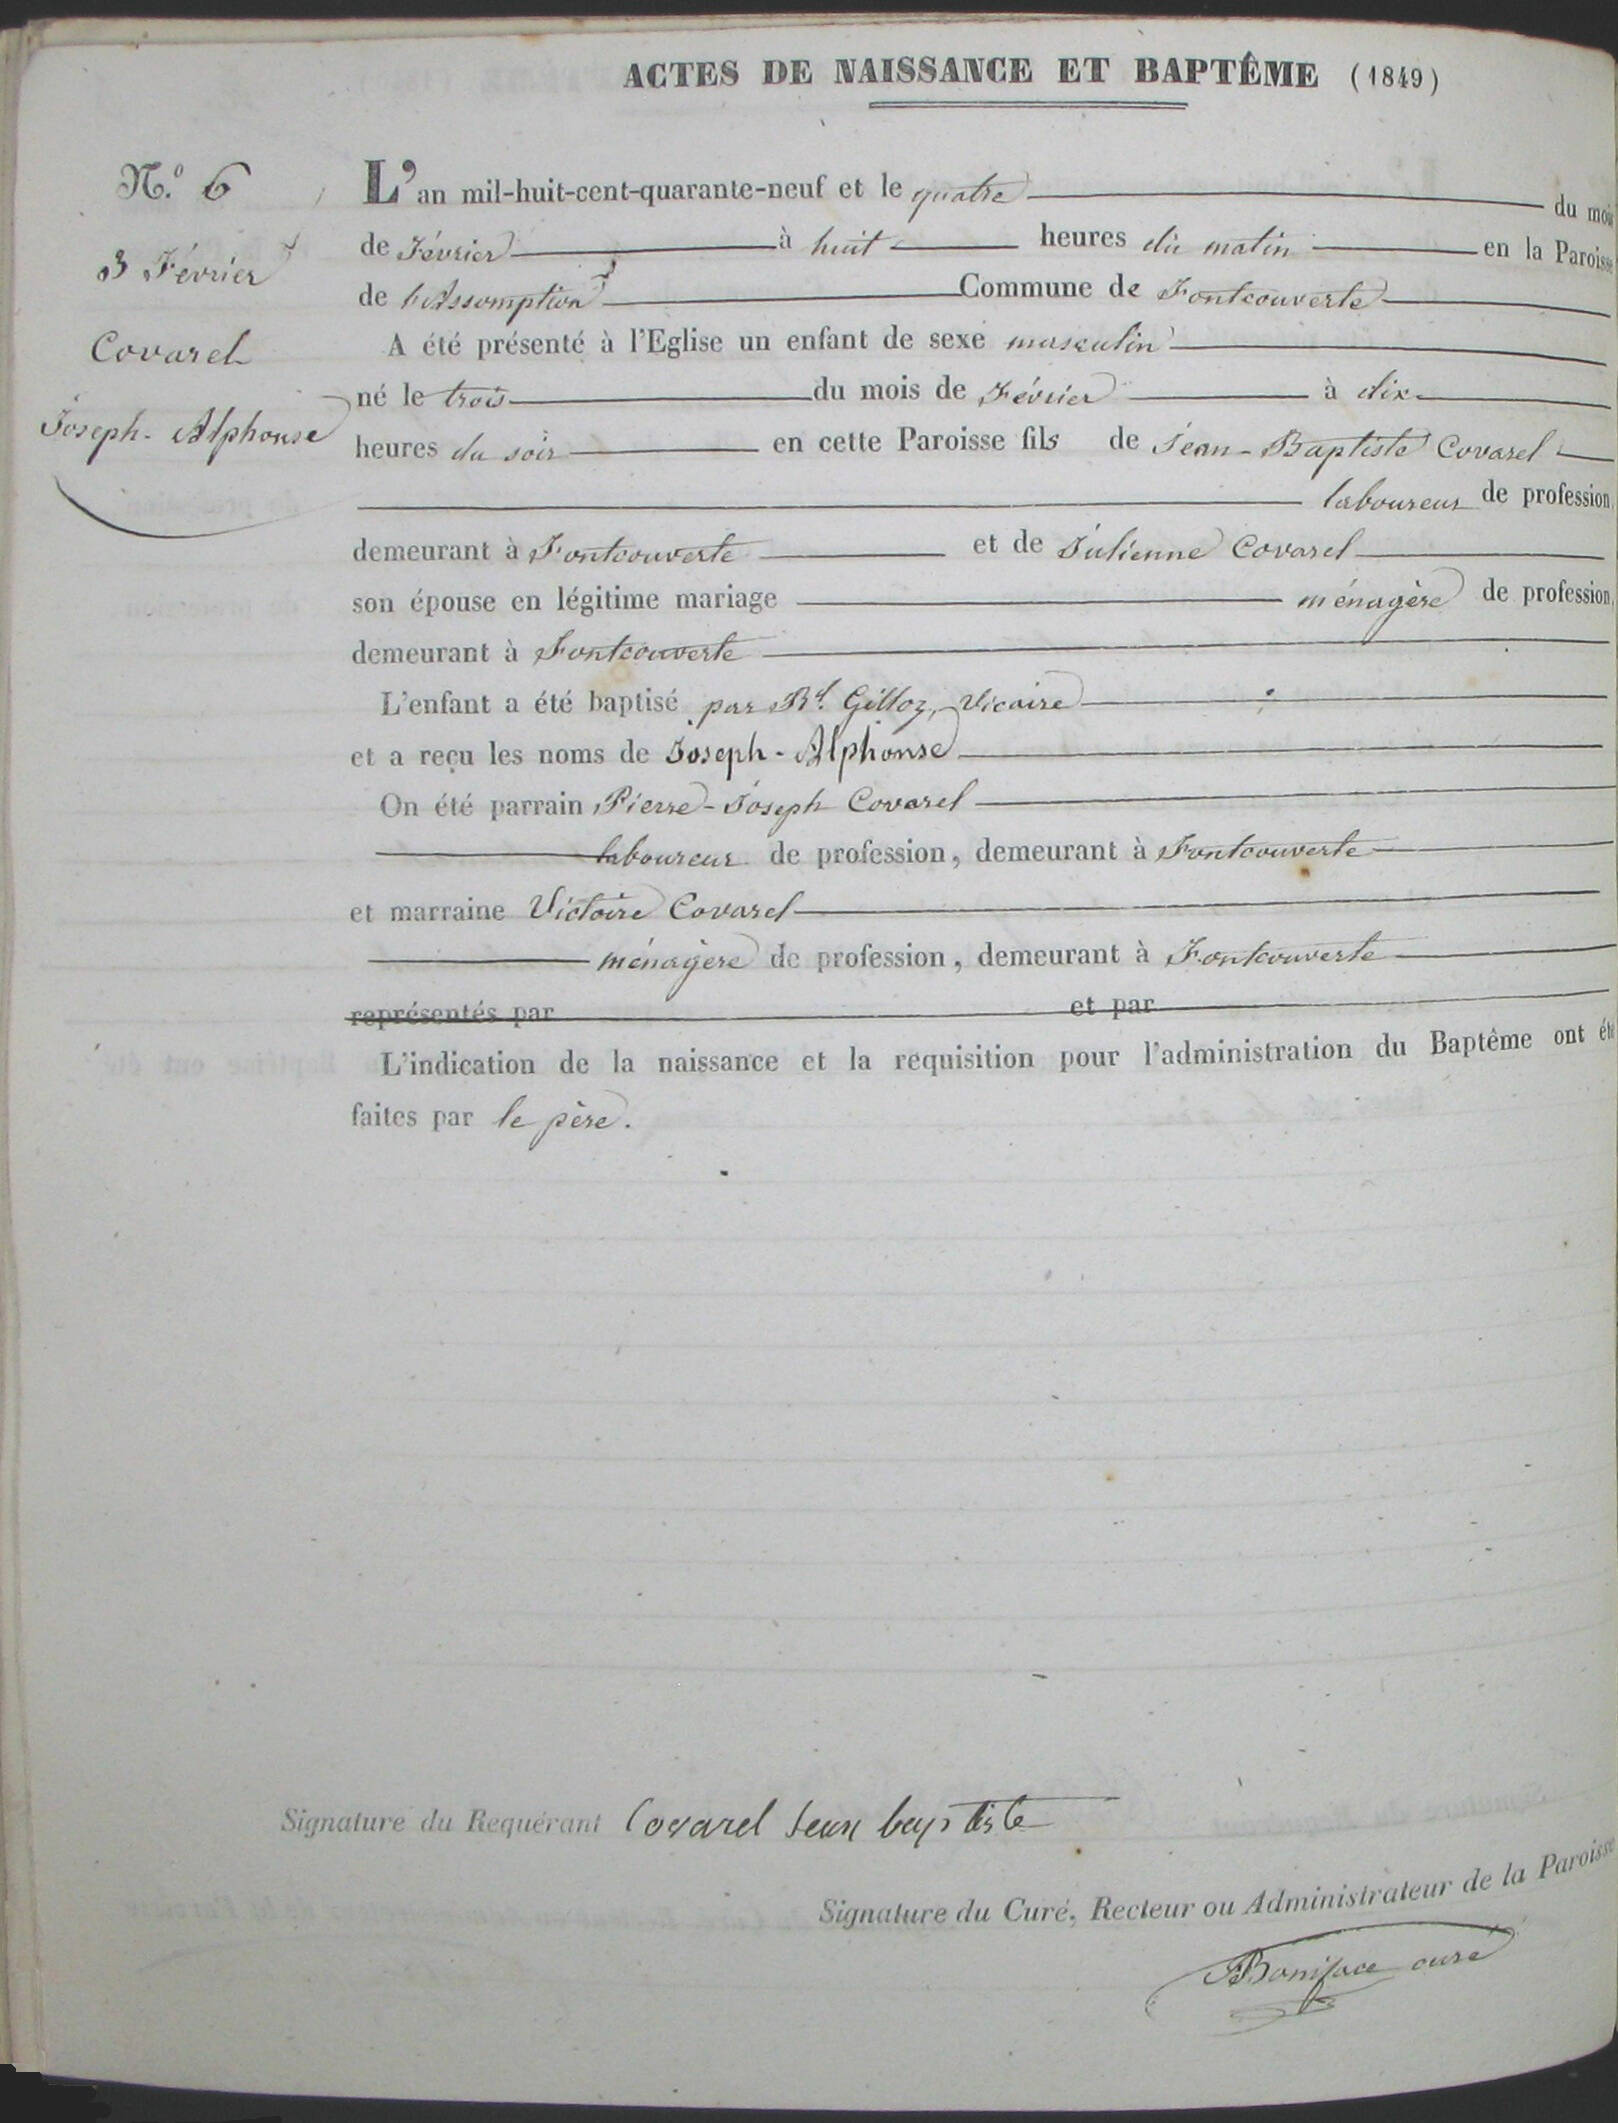 ACTES DE NAISSANCE ET BAPTÊME (1849)
N.º 6
3 Février
Covarel
Joseph-Alphonse
L'an mil-huit-cent-quarante-neuf et le quatre du mois
de Février à huit heures du matin en la Paroisse
de l'Assomption Commune de Fontcouverte
A été présenté à l'Eglise un enfant de sexe masculin
né le trois du mois de Février à dix
heures du soir en cette Paroisse fils de Jean-Baptiste Covarel
laboureur de profession
demeurant à Fontcouverte et de Julienne Covarel
son épouse en légitime mariage ménagère de profession
demeurant à Fontcouverte
L'enfant a été baptisé par Rd. Gilloz, Vicaire
et a reçu les noms de Joseph-Alphonse
On été parrain Pierre-Joseph Covarel
laboureur de profession, demeurant à Fontcouverte
et marraine Victoire Covarel
ménagère de profession, demeurant à Fontcouverte
représentés par et par
L'indication de la naissance et la requisition pour l'administration du Baptême ont été
faites par le père.
Signature du Requérant Covarel jean baptiste
Signature du Curé, Recteur ou Administrateur de la Paroisse
Boniface curé